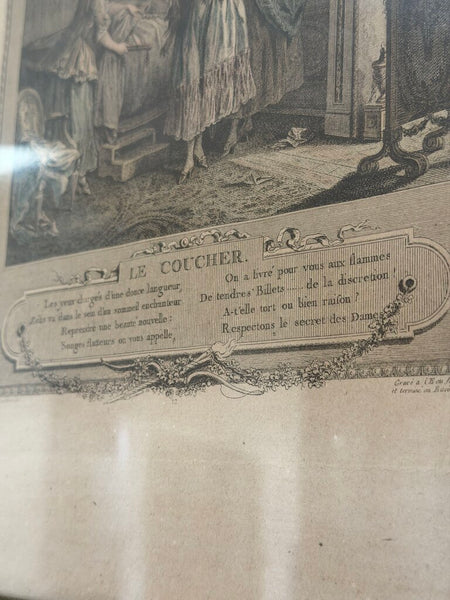 LE COUCHER.
Les yeux chargés d'une douce langueur,
va dans le sein d'un sommeil enchanteur
Reprendre une beauté nouvelle:
Songes flateurs on vous appelle,
On a livré pour vous aux flammes
De tendres Billets..... de la discretion!
A-t'elle tort ou bien raison?
Respectons le secret des Dames
Gravé a l'Eau
et terminé au Burin